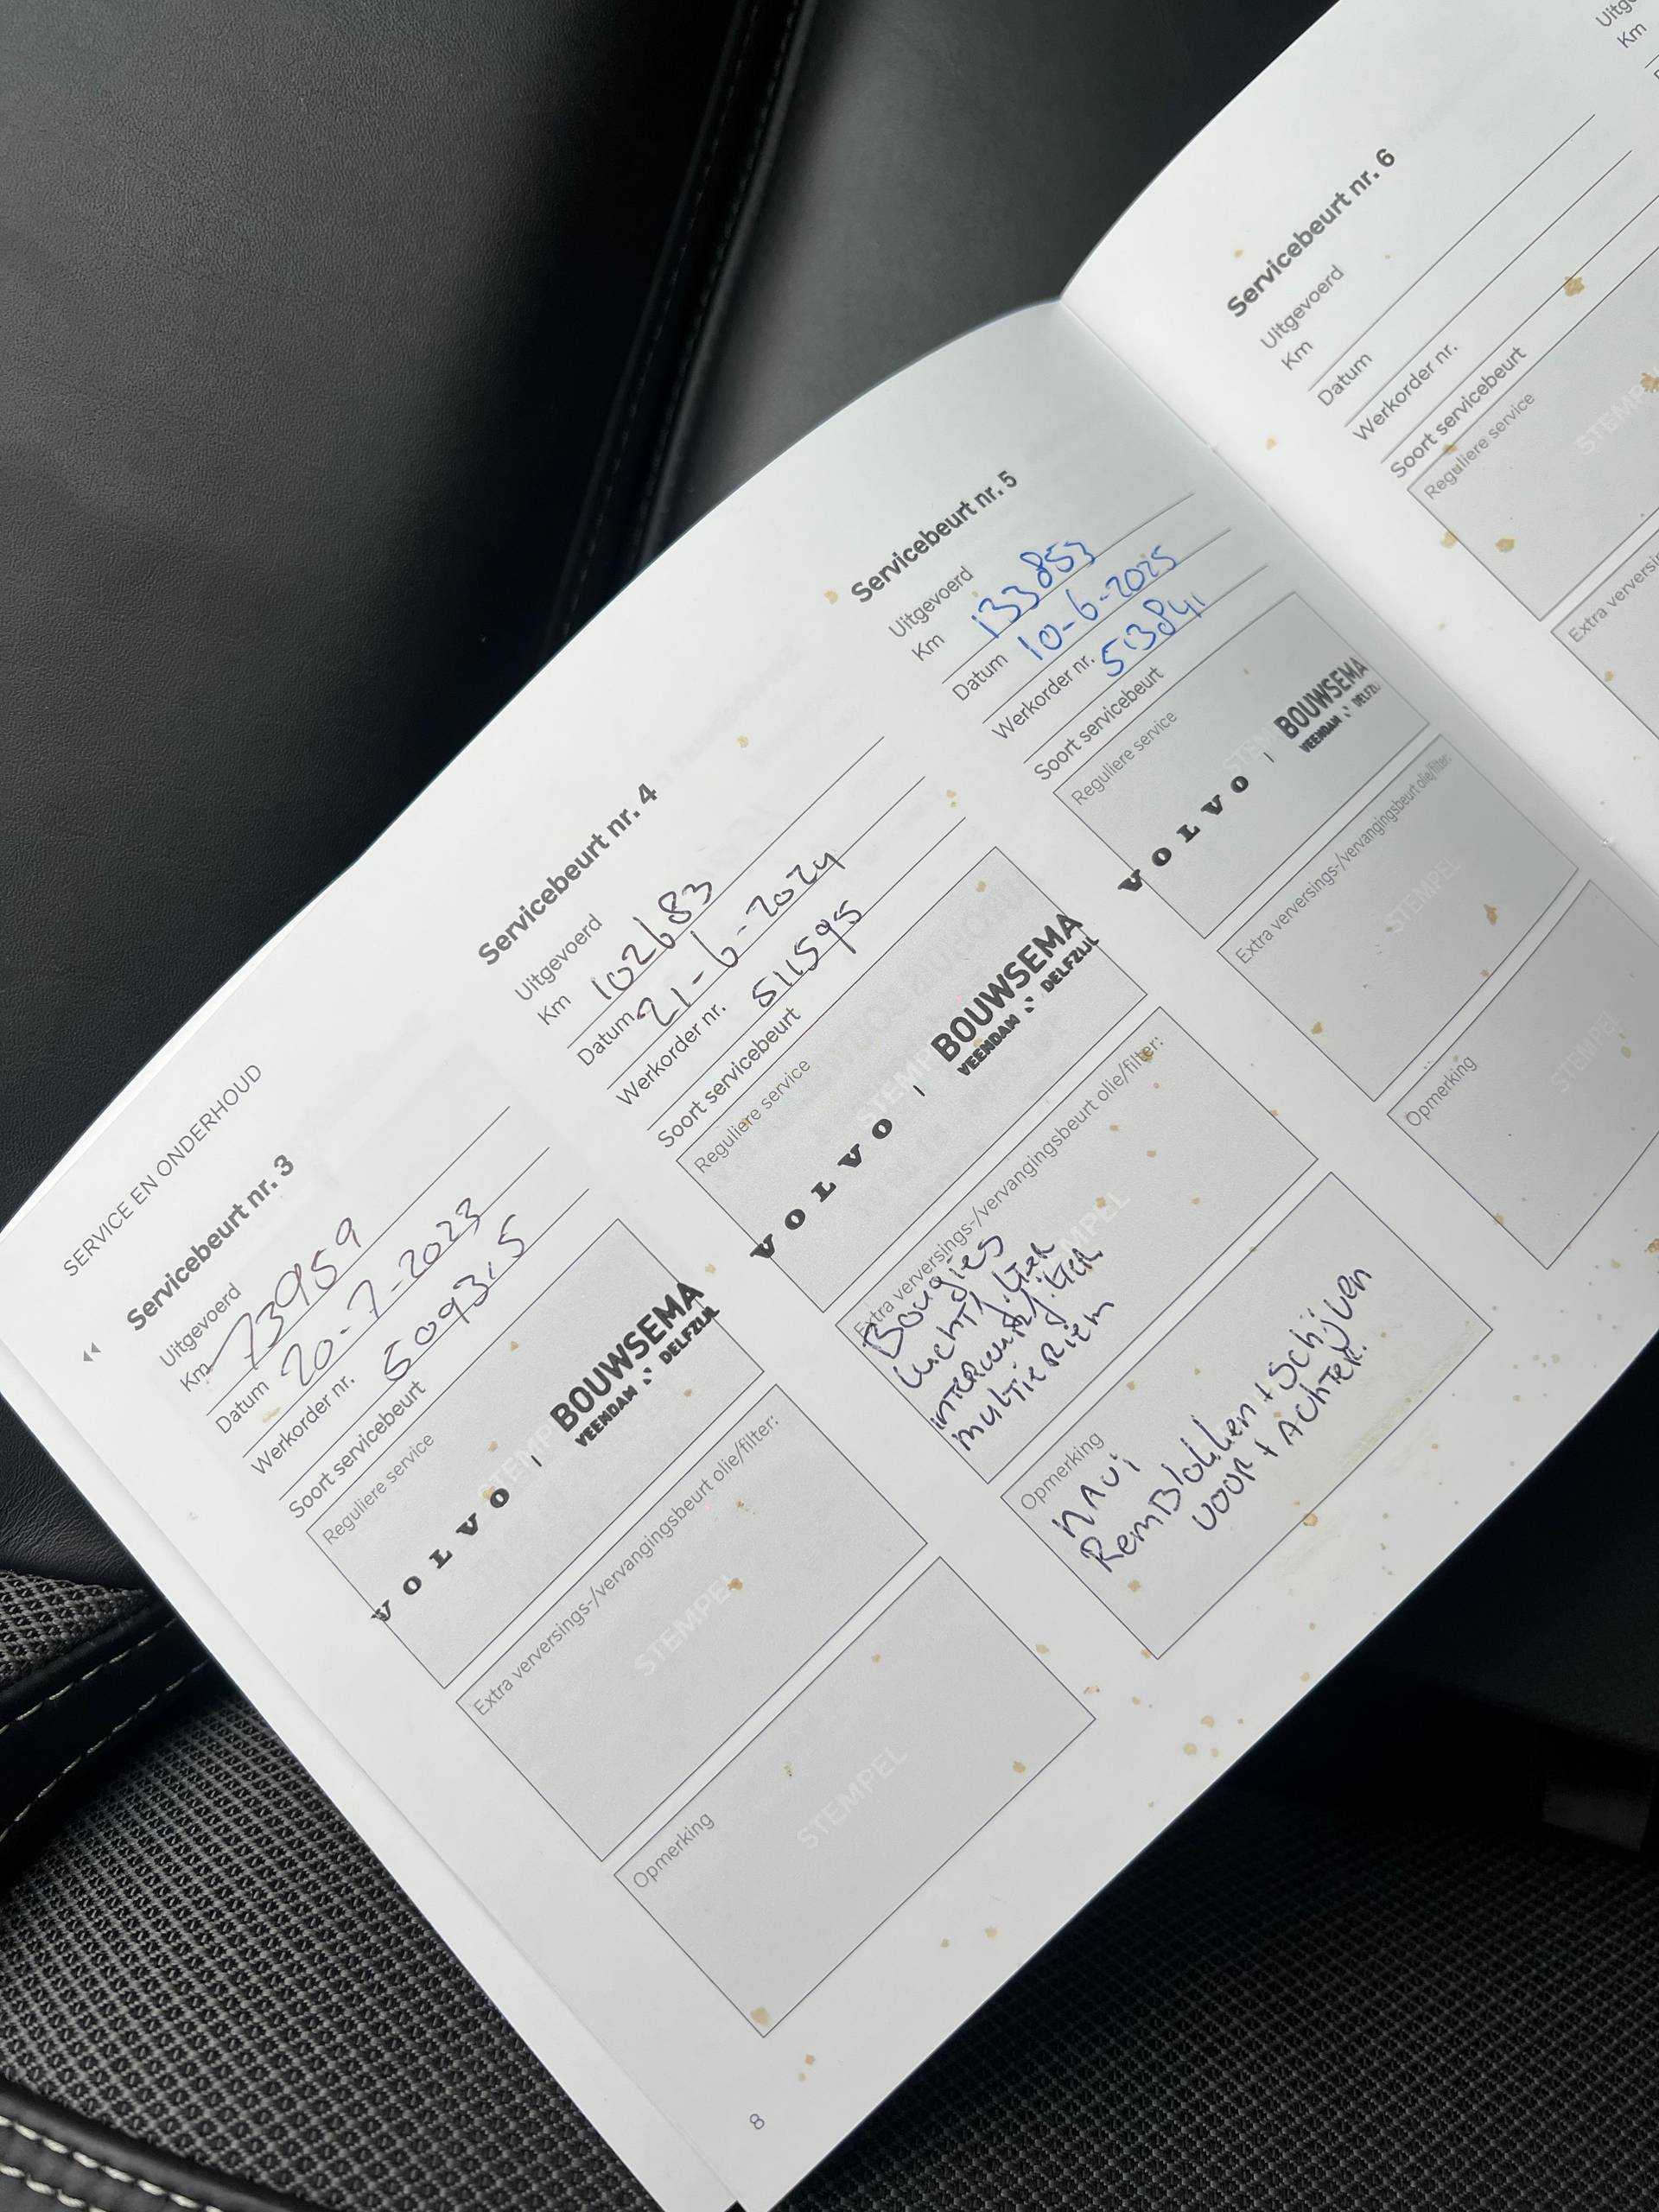 SERVICE EN ONDERHOUD
Servicebeurt nr. 3
Uitgevoerd
Km 73959
Datum 20-7-2023
Werkorder nr. 509315
Soort servicebeurt
Reguliere service
STEMPEL
VOLVO | BOUWSEMA
VEENDAM DELFZIJL
Extra verversings-/vervangingsbeurt olie/filter:
STEMPEL
Opmerking
STEMPEL
Servicebeurt nr. 4
Uitgevoerd
Km 102683
Datum 21-6-2024
Werkorder nr. 511595
Soort servicebeurt
Reguliere service
STEMPEL
VOLVO | BOUWSEMA
VEENDAM DELFZIJL
Extra verversings-/vervangingsbeurt olie/filter:
Bougies
Luchtfilter
interieurfilter
multieRiem
Opmerking
NAVi
RemBlokken + Schijven
voor + Achter.
Servicebeurt nr. 5
Uitgevoerd
Km 133853
Datum 10-6-2025
Werkorder nr. 513841
Soort servicebeurt
Reguliere service
VOLVO | BOUWSEMA
VEENDAM DELFZ
Extra verversings-/vervangingsbeurt olie/filter:
STEMPEL
Opmerking
STEMPEL
8
Servicebeurt nr. 6
Uitgevoerd
Km
Datum
Werkorder nr.
Soort servicebeurt
Reguliere service
STEMP
Extra verversin
Uitg
Km